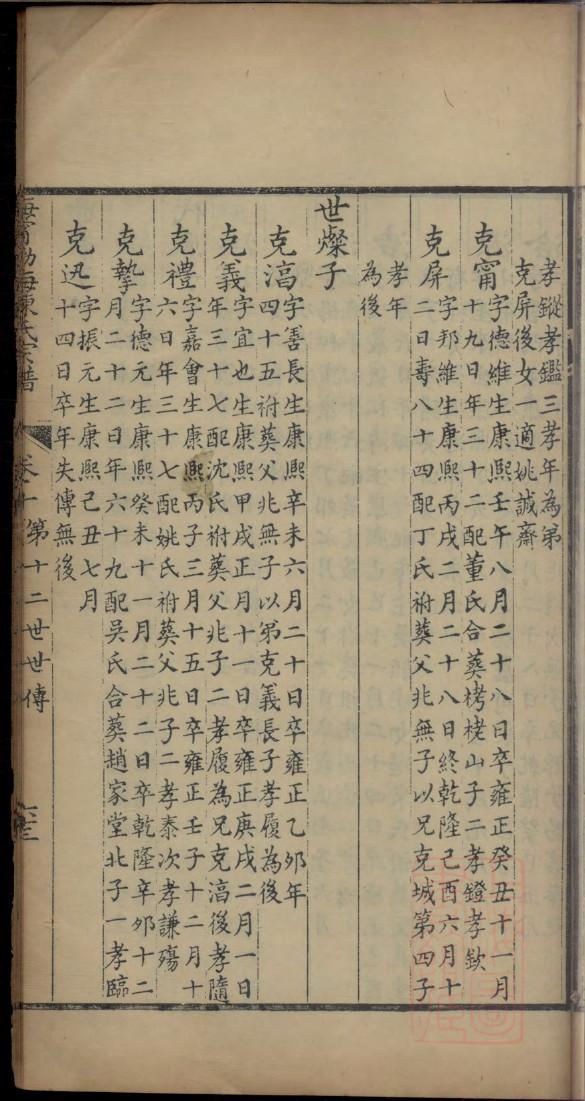 孝鏦孝鑑三孝年為弟
克屏後女一適姚誠齋
克甯
字德維生康熙壬午八月二十八日卒雍正癸丑十一月
十九日年三十二配董氏合葬栲栳山子二孝鐙孝欽
克屏
字邦維生康熙丙戌二月二十八日終乾隆己酉六月十
二日壽八十四配丁氏祔葬父兆無子以兄克城第四子
孝年
為後
世燦子
克滈
字善長生康熙辛未六月二十日卒雍正乙夘年
四十五祔葬父兆無子以弟克義長子孝履為後
克義
字宜也生康熙甲戌正月十一日卒雍正庚戌二月一日
年三十七配沈氏祔葬父兆子二孝履為兄克滈後孝隨
克禮
字嘉會生康熙丙子三月十五日卒雍正壬子十二月十
六日年三十七配姚氏祔葬父兆子二孝泰次孝謙殤
克摯
字德元生康熙癸未十一月二十二日卒乾隆辛夘十二
月二十二日年六十九配吳氏合葬趙家堂北子一孝臨
克迅
字振元生康熙己丑七月
十四日卒年失傳無後
海寧渤海陳氏宗譜
卷十
第十二世世傳
六三